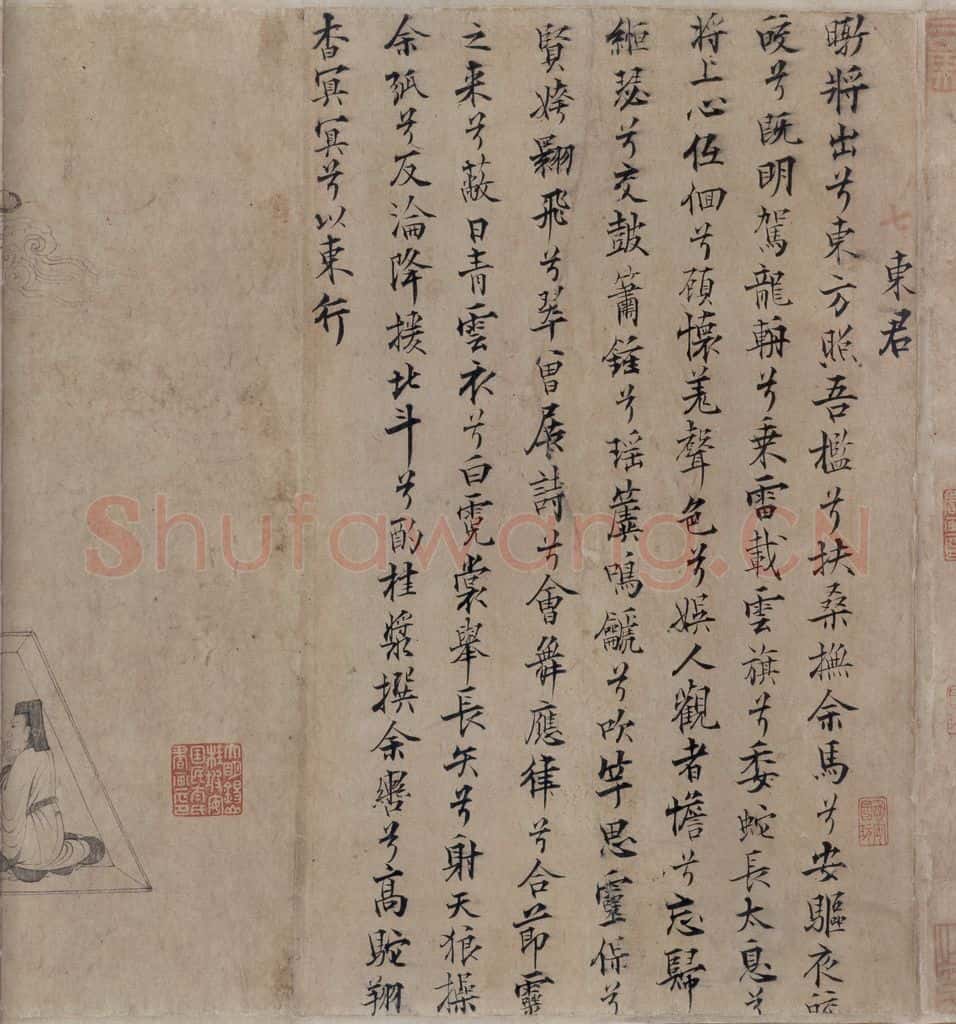 七
東君
暾將出兮東方照吾檻兮扶桑撫余馬兮安驅夜皎
皎兮既明駕龍輈兮乗雷載雲旗兮委蛇長太息兮
将上心低佪兮顧懷羌聲色兮娛人觀者憺兮忘歸
緪瑟兮交鼓簫鍾兮瑶簴鳴䶵兮吹竽思靈保兮
賢姱翾飛兮翠曾展詩兮會舞應律兮合節靈
之来兮蔽日青雲衣兮白霓裳舉長矢兮射天狼操
余弧兮反淪降援北斗兮酌桂漿撰余轡兮高駝翔
杳冥冥兮以東行
Shufawang.CN